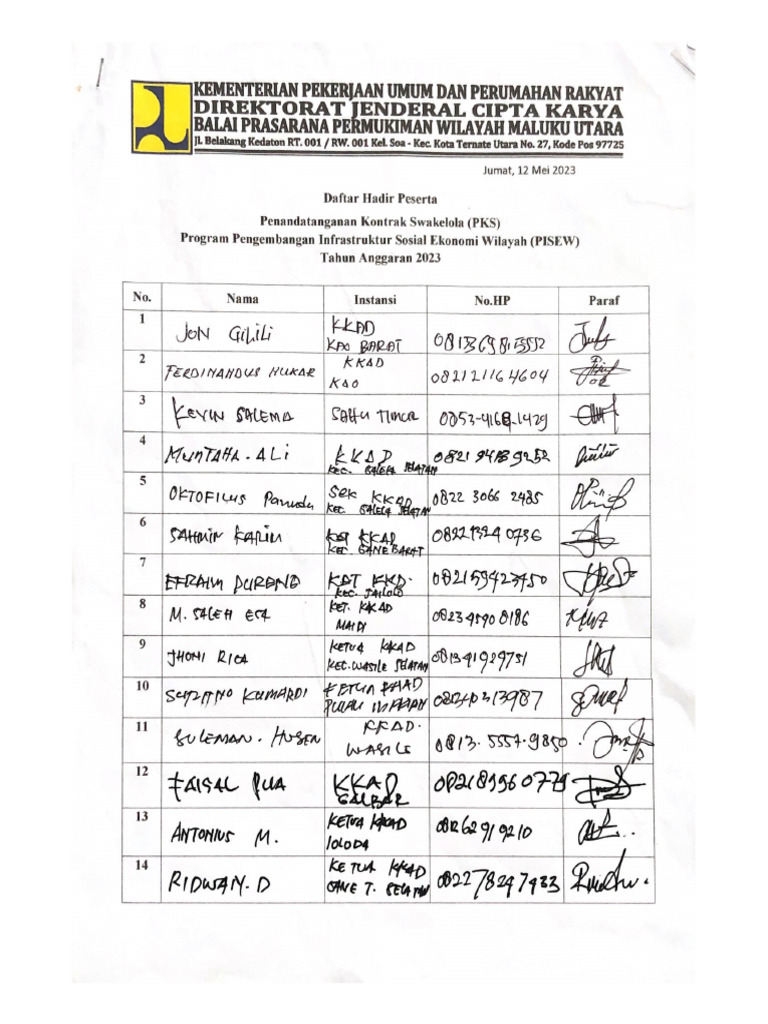 KEMENTERIAN PEKERJAAN UMUM DAN PERUMAHAN RAKYAT
DIREKTORAT JENDERAL CIPTA KARYA
BALAI PRASARANA PERMUKIMAN WILAYAH MALUKU UTARA
Jl. Belakang Kedaton RT. 001 / RW. 001 Kel. Soa - Kec. Kota Ternate Utara No. 27, Kode Pos 97725
Jumat, 12 Mei 2023
Daftar Hadir Peserta
Penandatanganan Kontrak Swakelola (PKS)
Program Pengembangan Infrastruktur Sosial Ekonomi Wilayah (PISEW)
Tahun Anggaran 2023
No. Nama Instansi No.HP Paraf
1 JON GILILI KKAD KAO BARAT
2 FERDINANDUS HUKAR KKAD KAO 082121164604
3 KEVIN SALEMA SAHU TIMUR
4 MUNTAHA. ALI KKAD KEC. GALELA SELATAN
5 OKTOFILUS SEK KKAD KEC. GALELA SELATAN 0822 3066 2485
6 SAHMIN KARIM KKAD KEC. GANE BARAT 082213240736
7 EFRAIM DURANG KEC. JAILOLO 082159423450
8 M. SALEH ESA KET. KKAD 082345900186
9 JHONI RICA KETUA KKAD KEC. WASILE SELATAN 081341929751
10 KETUA KKAD
11 SULEMAN. HUSEN KKAD. WASILE 0813. 5557. 9850
12 FAISAL PUA KKAD GALBAR
13 ANTONIUS M. KETUA KKAD LOLODA 081262919210
14 RIDWAN. D KETUA KKAD GANE T. SELATAN 082278247933